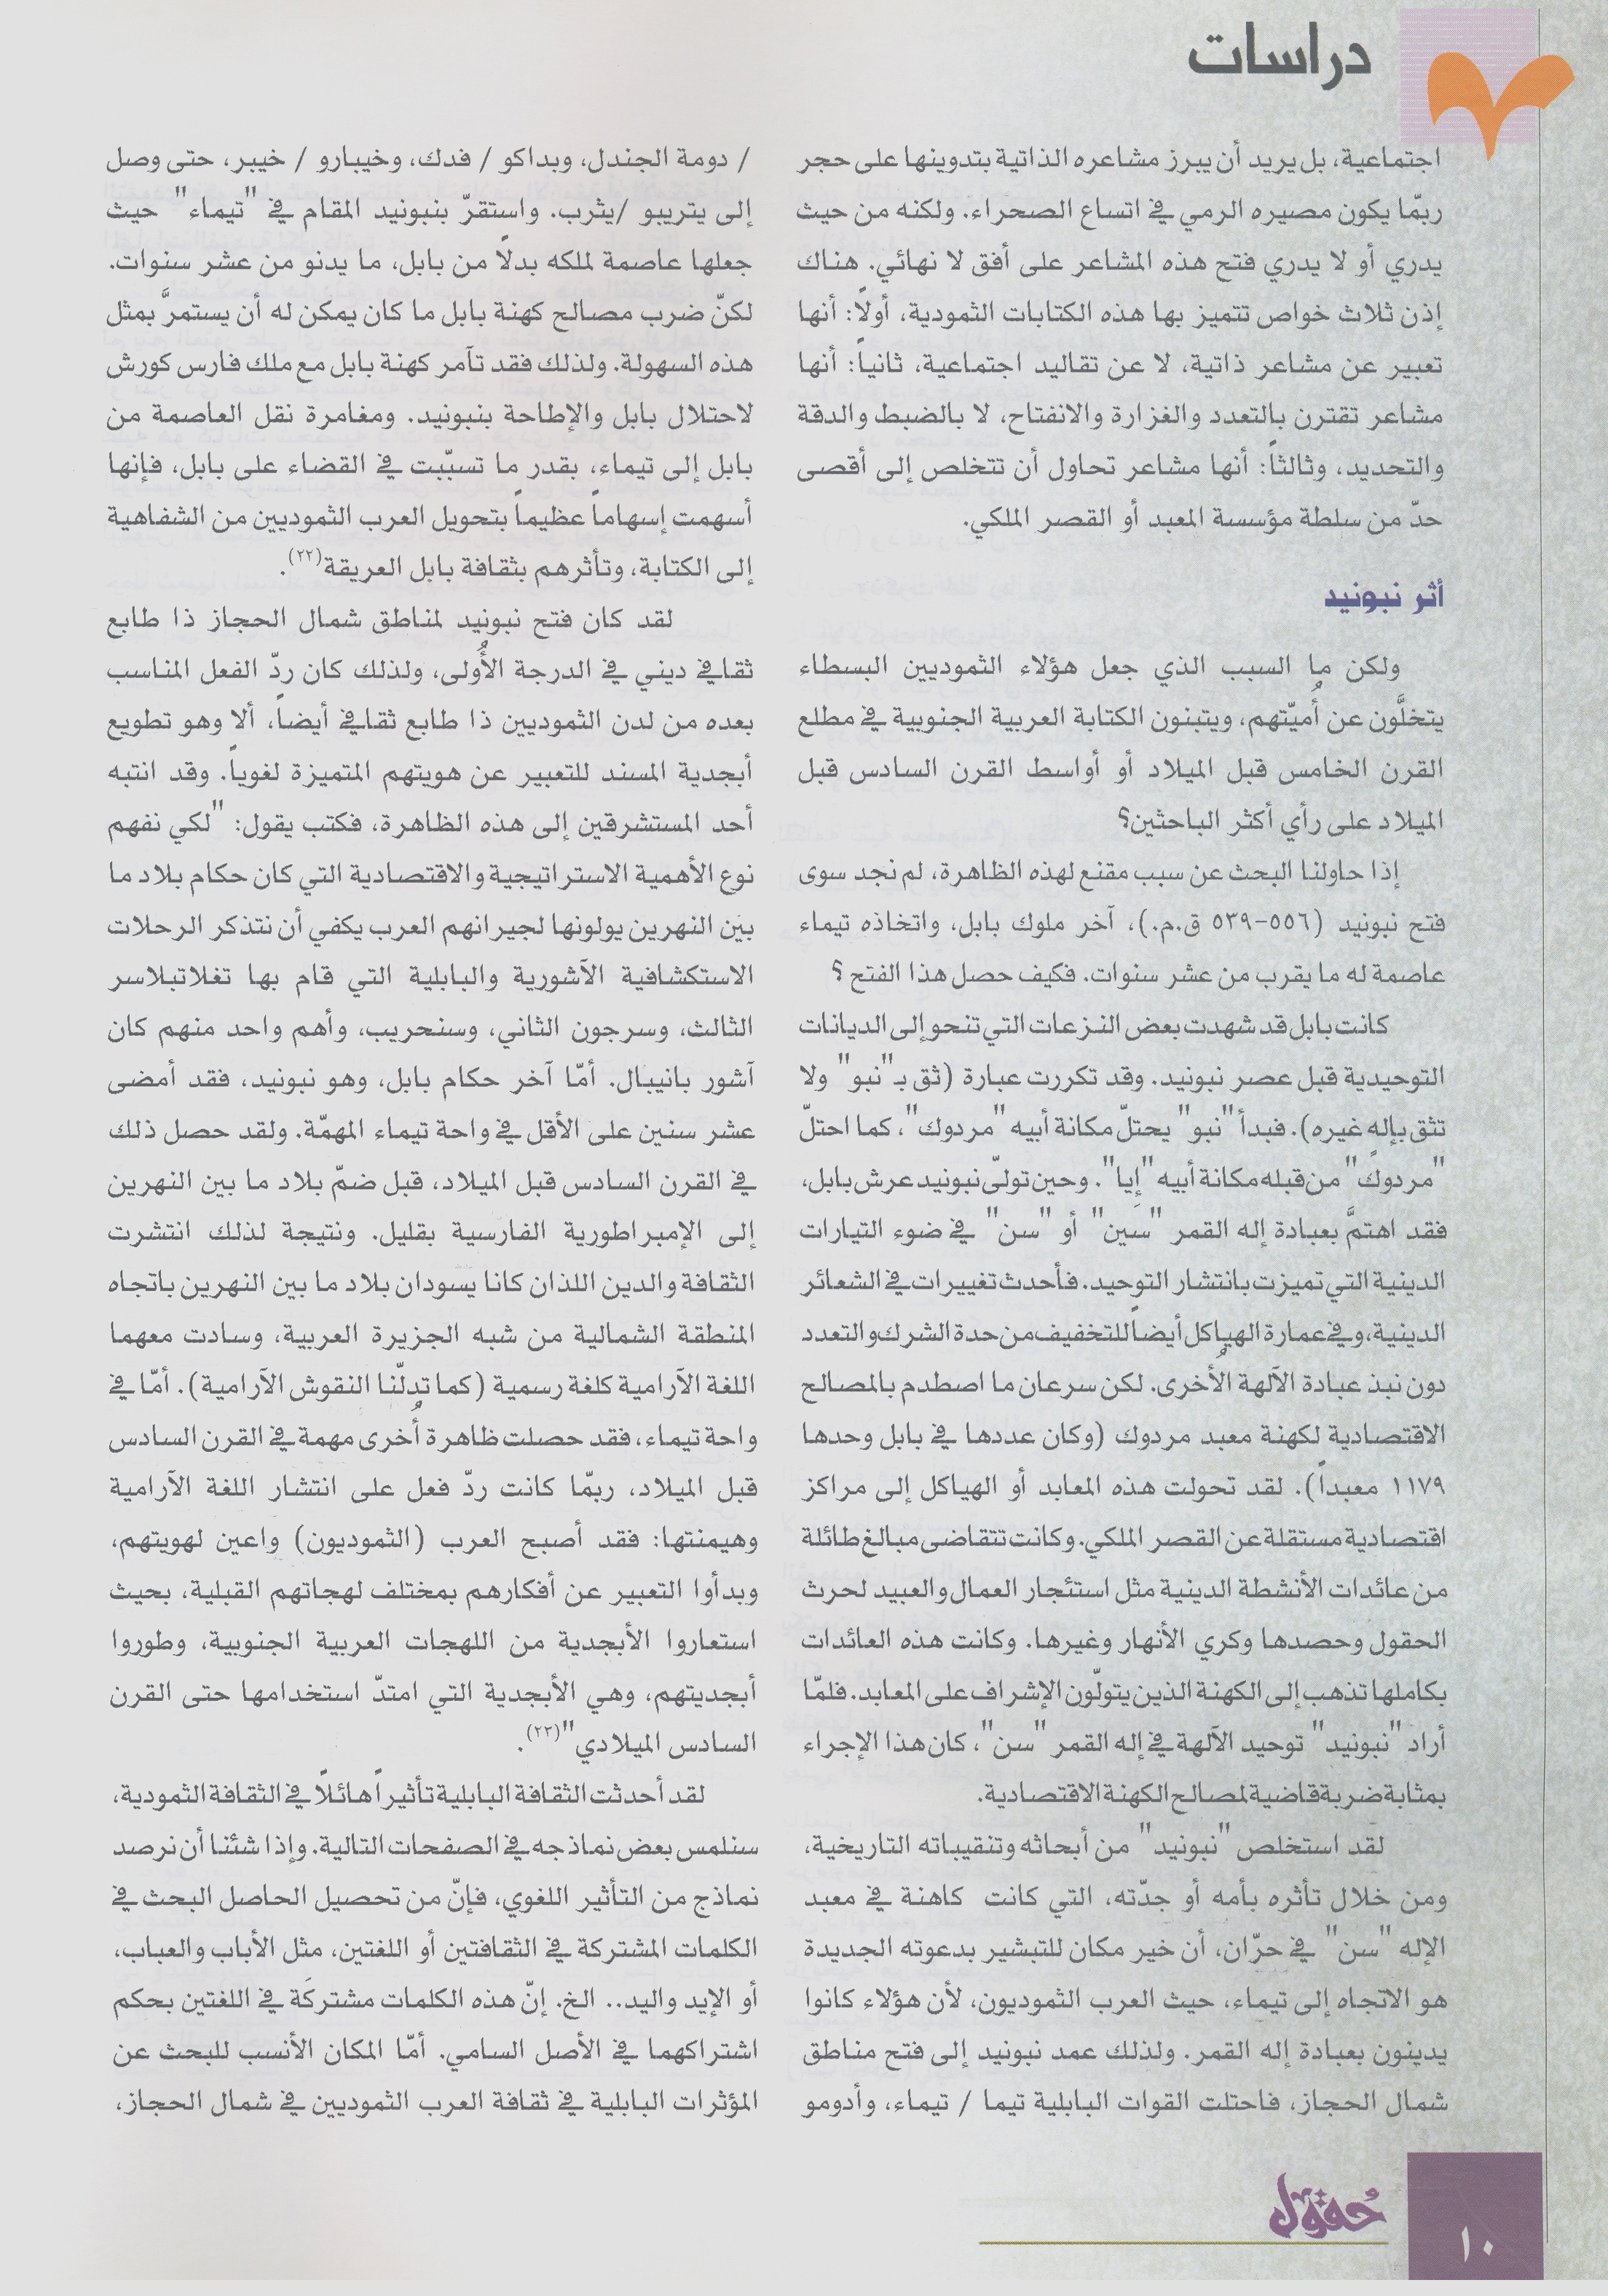 دراسات
اجتماعية، بل يريد أن يبرز مشاعره الذاتية بتدوينها على حجر
ربّما يكون مصيره الرمي في اتساع الصحراء. ولكنه من حيث
يدري أو لا يدري فتح هذه المشاعر على أفق لا نهائي. هناك
إذن ثلاث خواص تتميز بها هذه الكتابات الثمودية، أولاً: أنها
تعبير عن مشاعر ذاتية، لا عن تقاليد اجتماعية، ثانياً: أنها
مشاعر تقترن بالتعدد والغزارة والانفتاح، لا بالضبط والدقة
والتحديد، وثالثاً: أنها مشاعر تحاول أن تتخلص إلى أقصى
حدّ من سلطة مؤسسة المعبد أو القصر الملكي.
أثر نبونيد
ولكن ما السبب الذي جعل هؤلاء الثموديين البسطاء
يتخلَّون عن أُميّتهم، ويتبنون الكتابة العربية الجنوبية في مطلع
القرن الخامس قبل الميلاد أو أواسط القرن السادس قبل
الميلاد على رأي أكثر الباحثين؟
إذا حاولنا البحث عن سبب مقنع لهذه الظاهرة، لم نجد سوى
فتح نبونيد (٥٥٦-٥٣٩ ق.م.)، آخر ملوك بابل، واتخاذه تيماء
عاصمة له ما يقرب من عشر سنوات. فكيف حصل هذا الفتح ؟
كانت بابل قد شهدت بعض النزعات التي تنحو إلى الديانات
التوحيدية قبل عصر نبونيد. وقد تكررت عبارة (ثق بـ"نبو" ولا
تثق بإلهٍ غيره). فبدأ "نبو" يحتلّ مكانة أبيه "مردوك"، كما احتلّ
"مردوك" من قبله مكانة أبيه "إيا". وحين تولّى نبونيد عرش بابل،
فقد اهتمَّ بعبادة إله القمر "سين" أو "سن" في ضوء التيارات
الدينية التي تميزت بانتشار التوحيد. فأحدث تغييرات في الشعائر
الدينية، وفي عمارة الهياكل أيضاً للتخفيف من حدة الشرك والتعدد
دون نبذ عبادة الآلهة الأُخرى. لكن سرعان ما اصطدم بالمصالح
الاقتصادية لكهنة معبد مردوك (وكان عددها في بابل وحدها
١١٧٩ معبداً). لقد تحولت هذه المعابد أو الهياكل إلى مراكز
اقتصادية مستقلة عن القصر الملكي. وكانت تتقاضى مبالغ طائلة
من عائدات الأنشطة الدينية مثل استئجار العمال والعبيد لحرث
الحقول وحصدها وكري الأنهار وغيرها. وكانت هذه العائدات
بكاملها تذهب إلى الكهنة الذين يتولّون الإشراف على المعابد. فلمّا
أراد "نبونيد" توحيد الآلهة في إله القمر "سن"، كان هذا الإجراء
بمثابة ضربة قاضية لمصالح الكهنة الاقتصادية.
لقد استخلص "نبونيد" من أبحاثه وتنقيباته التاريخية،
ومن خلال تأثره بأمه أو جدّته، التي كانت كاهنة في معبد
الإله "سن" في حرّان، أن خير مكان للتبشير بدعوته الجديدة
هو الاتجاه إلى تيماء، حيث العرب الثموديون، لأن هؤلاء كانوا
يدينون بعبادة إله القمر. ولذلك عمد نبونيد إلى فتح مناطق
شمال الحجاز، فاحتلت القوات البابلية تيما / تيماء، وأدومو
/ دومة الجندل، وبداكو / فدك، وخيبارو / خيبر، حتى وصل
إلى يتريبو /يثرب. واستقرّ بنبونيد المقام في "تيماء" حيث
جعلها عاصمة لملكه بدلاً من بابل، ما يدنو من عشر سنوات.
لكنّ ضرب مصالح كهنة بابل ما كان يمكن له أن يستمرَّ بمثل
هذه السهولة. ولذلك فقد تآمر كهنة بابل مع ملك فارس كورش
لاحتلال بابل والإطاحة بنبونيد. ومغامرة نقل العاصمة من
بابل إلى تيماء، بقدر ما تسبّبت في القضاء على بابل، فإنها
أسهمت إسهاماً عظيماً بتحويل العرب الثموديين من الشفاهية
إلى الكتابة، وتأثرهم بثقافة بابل العريقة(٢٢).
لقد كان فتح نبونيد لمناطق شمال الحجاز ذا طابع
ثقافي ديني في الدرجة الأُولى، ولذلك كان ردّ الفعل المناسب
بعده من لدن الثموديين ذا طابع ثقافي أيضاً، ألا وهو تطويع
أبجدية المسند للتعبير عن هويتهم المتميزة لغوياً. وقد انتبه
أحد المستشرقين إلى هذه الظاهرة، فكتب يقول: "لكي نفهم
نوع الأهمية الاستراتيجية والاقتصادية التي كان حكام بلاد ما
بين النهرين يولونها لجيرانهم العرب يكفي أن نتذكر الرحلات
الاستكشافية الآشورية والبابلية التي قام بها تغلاتبلاسر
الثالث، وسرجون الثاني، وسنحريب، وأهم واحد منهم كان
آشور بانيبال. أمّا آخر حكام بابل، وهو نبونيد، فقد أمضى
عشر سنين على الأقل في واحة تيماء المهمّة. ولقد حصل ذلك
في القرن السادس قبل الميلاد، قبل ضمّ بلاد ما بين النهرين
إلى الإمبراطورية الفارسية بقليل. ونتيجة لذلك انتشرت
الثقافة والدين اللذان كانا يسودان بلاد ما بين النهرين باتجاه
المنطقة الشمالية من شبه الجزيرة العربية، وسادت معهما
اللغة الآرامية كلغة رسمية (كما تدلّنا النقوش الآرامية). أمّا في
واحة تيماء، فقد حصلت ظاهرة أُخرى مهمة في القرن السادس
قبل الميلاد، ربّما كانت ردّ فعل على انتشار اللغة الآرامية
وهيمنتها: فقد أصبح العرب (الثموديون) واعين لهويتهم،
وبدأوا التعبير عن أفكارهم بمختلف لهجاتهم القبلية، بحيث
استعاروا الأبجدية من اللهجات العربية الجنوبية، وطوروا
أبجديتهم، وهي الأبجدية التي امتدّ استخدامها حتى القرن
السادس الميلادي"(٢٣).
لقد أحدثت الثقافة البابلية تأثيراً هائلاً في الثقافة الثمودية،
سنلمس بعض نماذجه في الصفحات التالية. وإذا شئنا أن نرصد
نماذج من التأثير اللغوي، فإنّ من تحصيل الحاصل البحث في
الكلمات المشتركة في الثقافتين أو اللغتين، مثل الأباب والعباب،
أو الإيد واليد.. الخ. إنّ هذه الكلمات مشتركَة في اللغتين بحكم
اشتراكهما في الأصل السامي. أمّا المكان الأنسب للبحث عن
المؤثرات البابلية في ثقافة العرب الثموديين في شمال الحجاز،
حُقول
١٠